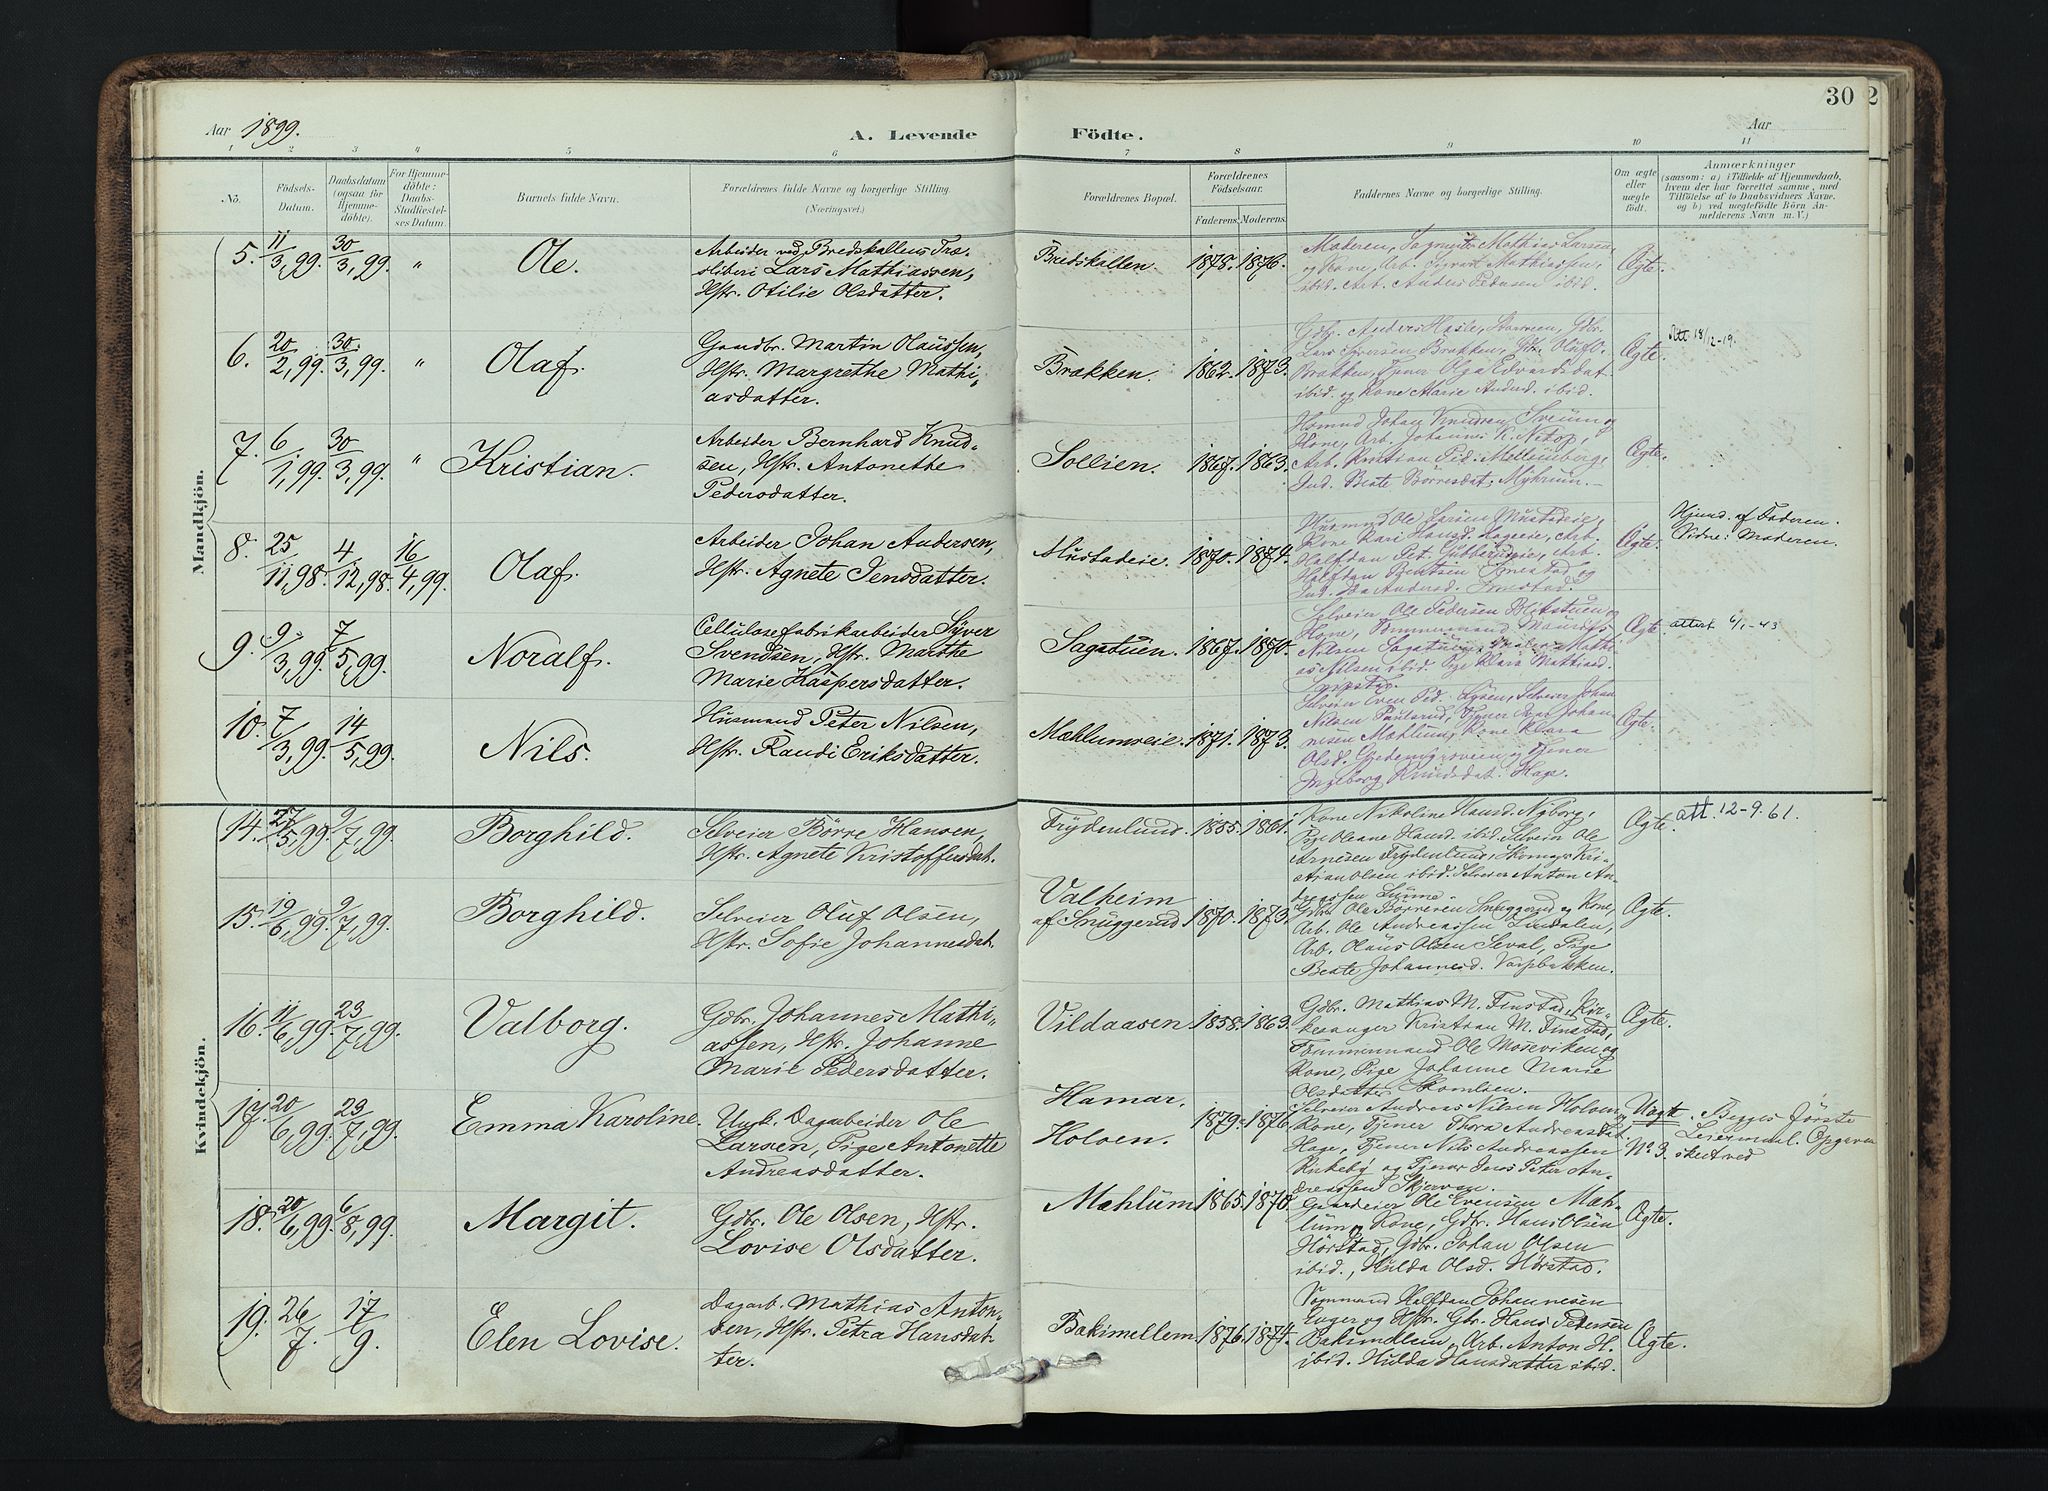 30 2
Aar 1899. A. Levende Födte. Aar
1 2 3 4 5 6 7 8 9 10 11
No. Födsels-Datum. Daabsdatum (ogsaa for Hjemme-döbte). For Hjemme-döbte: Daabs-Stadfæstel-ses Datum. Barnets fulde Navn. Forældrenes fulde Navne og borgerlige Stilling. (Næringsvei.) Forældrenes Bopæl. Forældrenes Födselsaar. Faderens. Moderens. Faddernes Navne og borgerlige Stilling. Om ægte eller uægte födt. Anmærkninger
(saasom: a) i Tilfælde af Hjemmedaab,
hvem der har forrettet samme, med
Tilföielse af to Daabsvidners Navne,
og b) ved uægtefödte Börn An-
melderens Navn m. V.)
Mandkjön.
5. 11/3,99. 30/3,99. " Ole.
Arbeider ved Bredskallens Træ-
sliberi Lars Mathiassen,
Hstr. Otilie Olsdatter.
Bredskallen. 1878. 1876.
Moderen, Sagmester Mathias Larsen,
og Kone, Arb. Sigvart Mathiassen,
ibid. Arb. Anders Pedersen ibid.
Ægte.
6. 20/2,99. 30/3,99. " Olaf.
Gaardbr. Martin Olaussen,
Hstr. Margrethe Mathi-
asdatter.
Brækken. 1862. 1873.
Gdbr. Anders Hasle, Gdbr.
Lars Iversen Brækken, Oluf O.
Brækken, Tjener Olga Edvardsdat.
ibid. og Kone Marie Andersd. ibid.
Ægte. Att. 18/12-19.
7. 6/1,99. 30/3,99. " Kristian.
Arbeider Bernhard Knud-
sen, Hstr. Antonethe
Pedersdatter.
Sollien. 1867. 1863.
Husmd. Johan Knudsen Sveum og
Kone, Arb. Johannes K.
Arb. Kristian Ped.
Ind. Beate Börresdat. Myhrum.
Ægte.
8. 25/11,98. 4/12,98. 16/4,99. Olaf.
Arbeider Johan Andersen,
Hstr. Agnete Jensdatter.
Mustadeie. 1870. 1874.
Husmand Ole Larsen Mustadeie,
Kone Kari Hansd. Hageeie, Arb.
Halfdan Pet. Arb.
Halfdan Bentsen og
Ind. Ida Andersd.
Ægte. Hjemd. af Faderen.
Vidne: Moderen.
9. 9/3,99. 7/5,99. Noralf.
Cellulosefabrikarbeider Syver
Svendsen, Hstr. Marthe
Marie Kaspersdatter.
Sagstuen. 1867. 1870.
Selveier Ole Pedersen og
Kone, Tømmermand
Nilsen Sagstuen, Mathi-
as Nilsen ibid. Pige Klara Mathiasd.
Ægte. attest 6/1-43
10. 7/3,99. 14/5,99. Nils.
Husmand Peter Nilsen,
Hstr. Randi Eriksdatter.
Mæhlumseie. 1871. 1873.
Selveier Even Ped. Selveier Johan
Nilsen Paulsrud, Tjener Johan-
nesen Mæhlum, Kone Klara
Olsd. og Tjener
Ingeborg Knudsdat. Hage.
Ægte.
Kvindekjön.
14. 27/5,99. 9/7,99. Borghild.
Selveier Børre Hansen,
Hstr. Agnete Kristoffersdat.
Frydenlund. 1855. 1861.
Kone Nikoline Hansd. Nyborg,
Pige Oleane Hansd. ibid. Selveier Ole
Arnesen Frydenlund, Skomag. Kri-
stian Olsen ibid. Selveier Anton An-
dreassen
Ægte. att. 12-9.61.
15. 19/6,99. 9/7,99. Borghild.
Selveier Oluf Olsen,
Hstr. Sofie Johannesdat.
Valheim
af Snuggerud 1870. 1873.
Gdbr. Ole Børresen Snuggerud og Kone,
Arb. Ole Andreassen Lundalen,
Arb. Olaus Olsen Seval, Pige
Beate Johannesd. Korpbakken.
Ægte.
16. 11/6,99. 23/7,99. Valborg.
Gdbr. Johannes Mathi-
assen, Hstr. Johanne
Marie Pedersdatter.
Vildaasen 1858. 1863.
Gdbr. Mathias M. Finstad, Kir-
kesanger Kristian M. Finstad,
Tømmermand Ole Moseviken og
Kone, Pige Johanne Marie
Olsdatter
Ægte.
17. 20/6,99. 23/7,99. Emma Karoline.
Ungk. Dagarbeider Ole
Larsen, Pige Antonette
Andreasdatter.
Hamar.
Holven. 1879. 1876.
Selveier Andreas Nilsen Holven og
Kone, Tjener Thora Andreasdat.
Hage, Tjener Nils Andreassen
Kirkeby og Tjener Jens Peter An-
dreassen Skjerven.
Uægte
No 3. Begges første
Leiermaal. Opgaven
skedt ved
18. 20/6,99. 6/8,99. Margit.
Gdbr. Ole Olsen, Hstr.
Lovise Olsdatter.
Mæhlum 1865. 1870.
Gaardeier Ole Evensen Mæh-
lum og Kone, Gdbr. Hans Olsen
Hørstad, Gdbr. Johan Olsen
ibid., Hulda Olsd. Hørstad.
Ægte.
19. 26/7. 17/9. Elen Lovise.
Dagarb. Mathias Anton-
sen, Hstr. Petra Hansdat-
ter.
Bakimellem 1876. 1874.
Halfdan Johannesen
Enger og Hstr. Gbr. Hans Pedersen
Bakimellem, Arb. Anton H.
ibid. Hulda Hansdatter ibid.
Ægte.